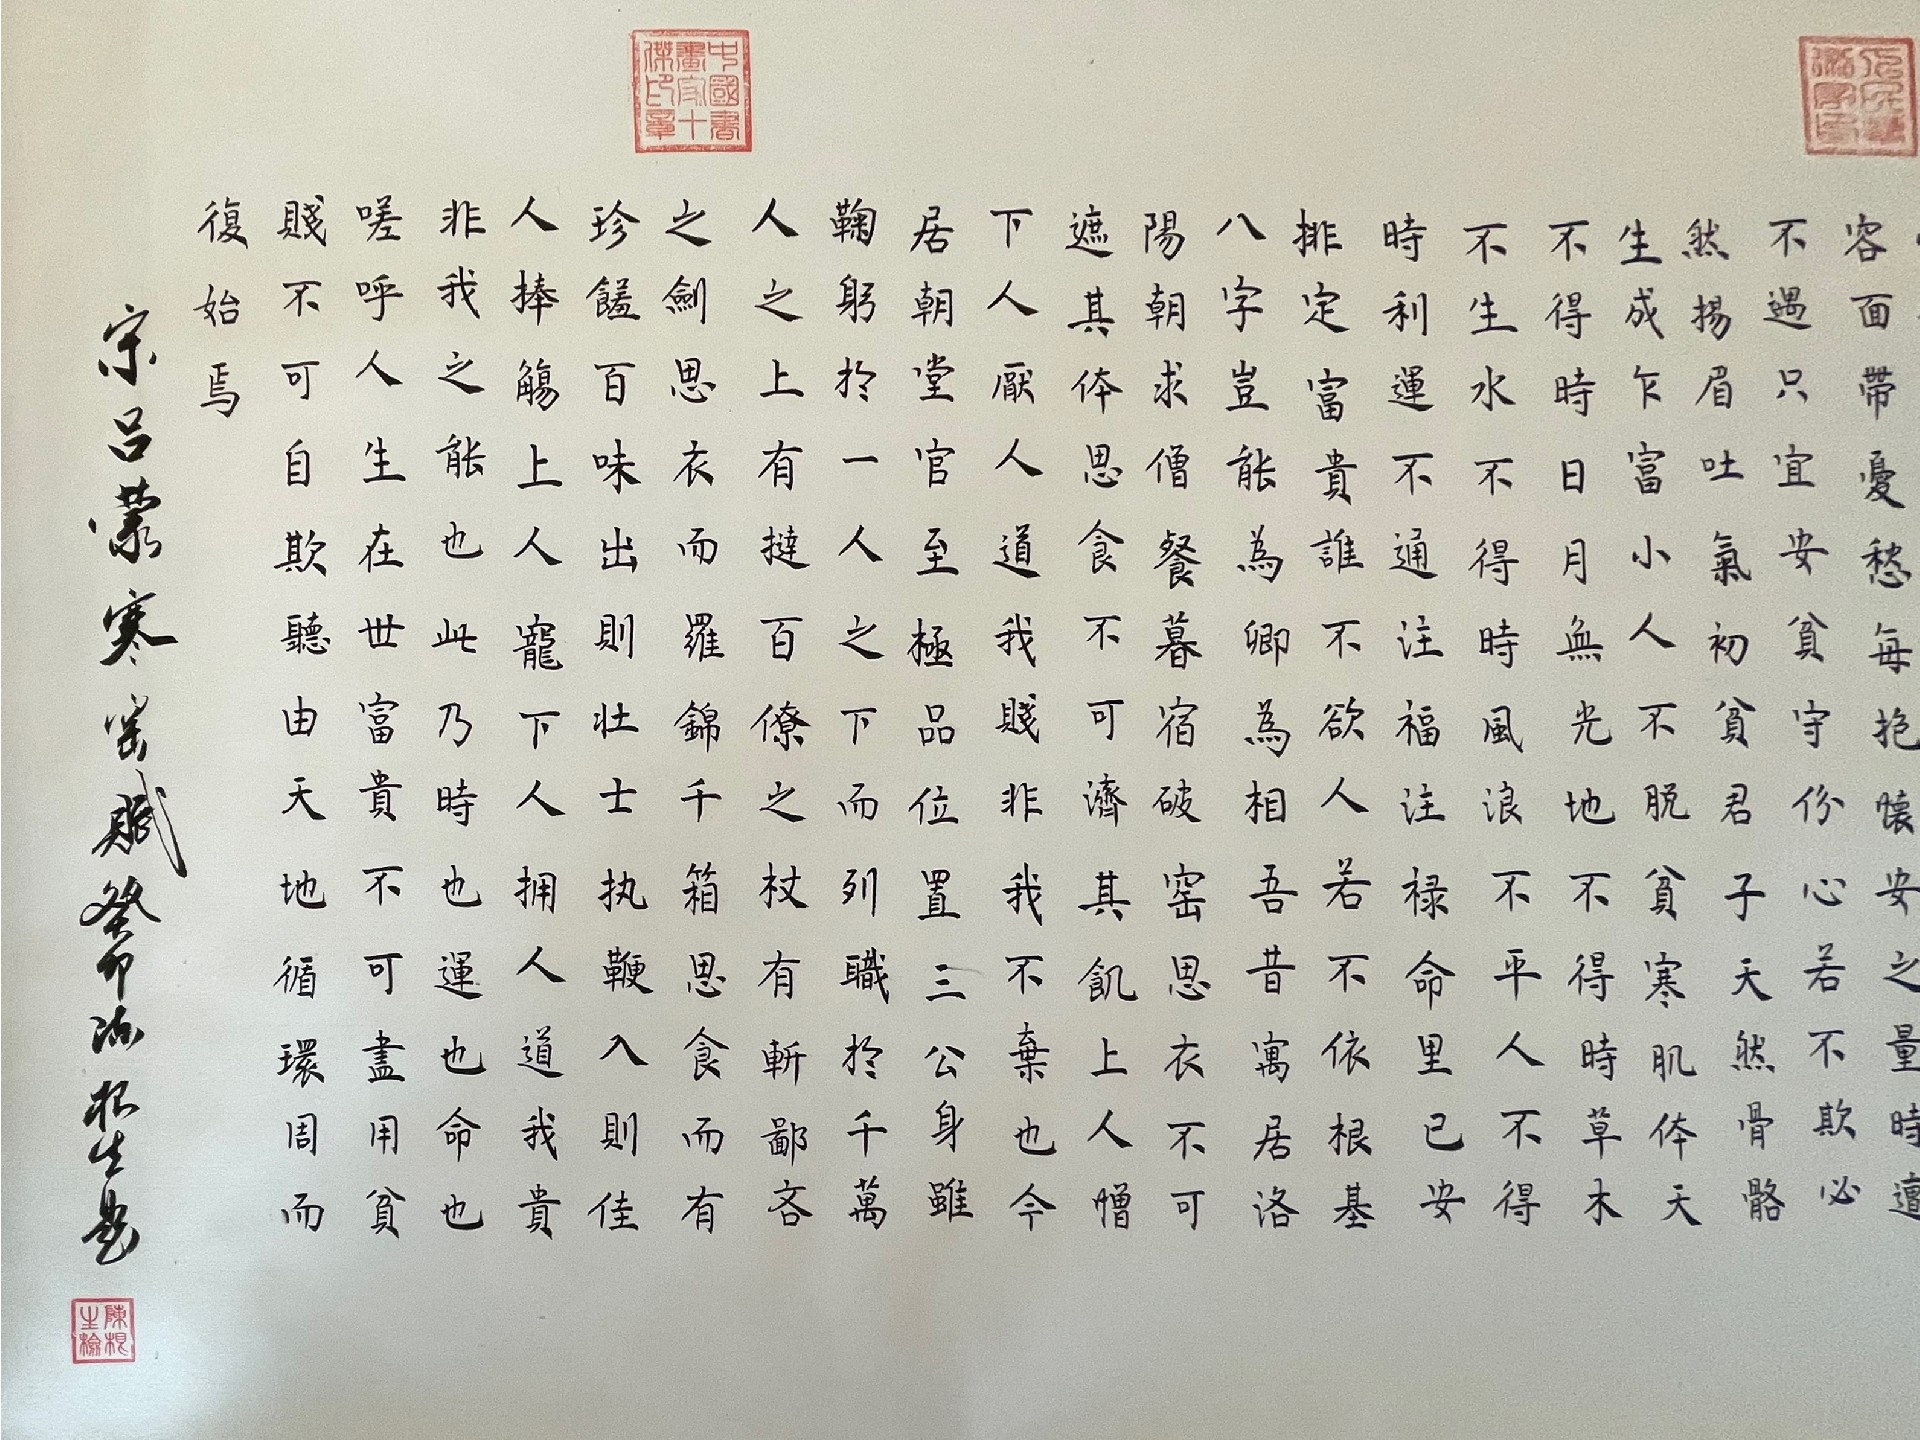 容面帶憂愁每抱懷安之量時遭
不遇只宜安貧守份心若不欺必
然揚眉吐氣初貧君子天然骨骼
生成乍富小人不脱貧寒肌体天
不得時日月無光地不得時草木
不生水不得時風浪不平人不得
時利運不通注福注禄命里已安
排定富貴誰不欲人若不依根基
八字豈能為卿為相吾昔寓居洛
陽朝求僧餐暮宿破窑思衣不可
遮其体思食不可濟其飢上人憎
下人厭人道我賤非我不棄也今
居朝堂官至極品位置三公身雖
鞠躬於一人之下而列職於千萬
人之上有撻百僚之杖有斬鄙吝
之劍思衣而羅錦千箱思食而有
珍饈百味出則壮士执鞭入則佳
人捧觴上人寵下人拥人道我貴
非我之能也此乃時也運也命也
嗟呼人生在世富貴不可盡用貧
賤不可自欺聽由天地循環周而
復始焉
宋呂蒙寒窑賦癸卯根生
中國書畫家十傑印章
陳根生